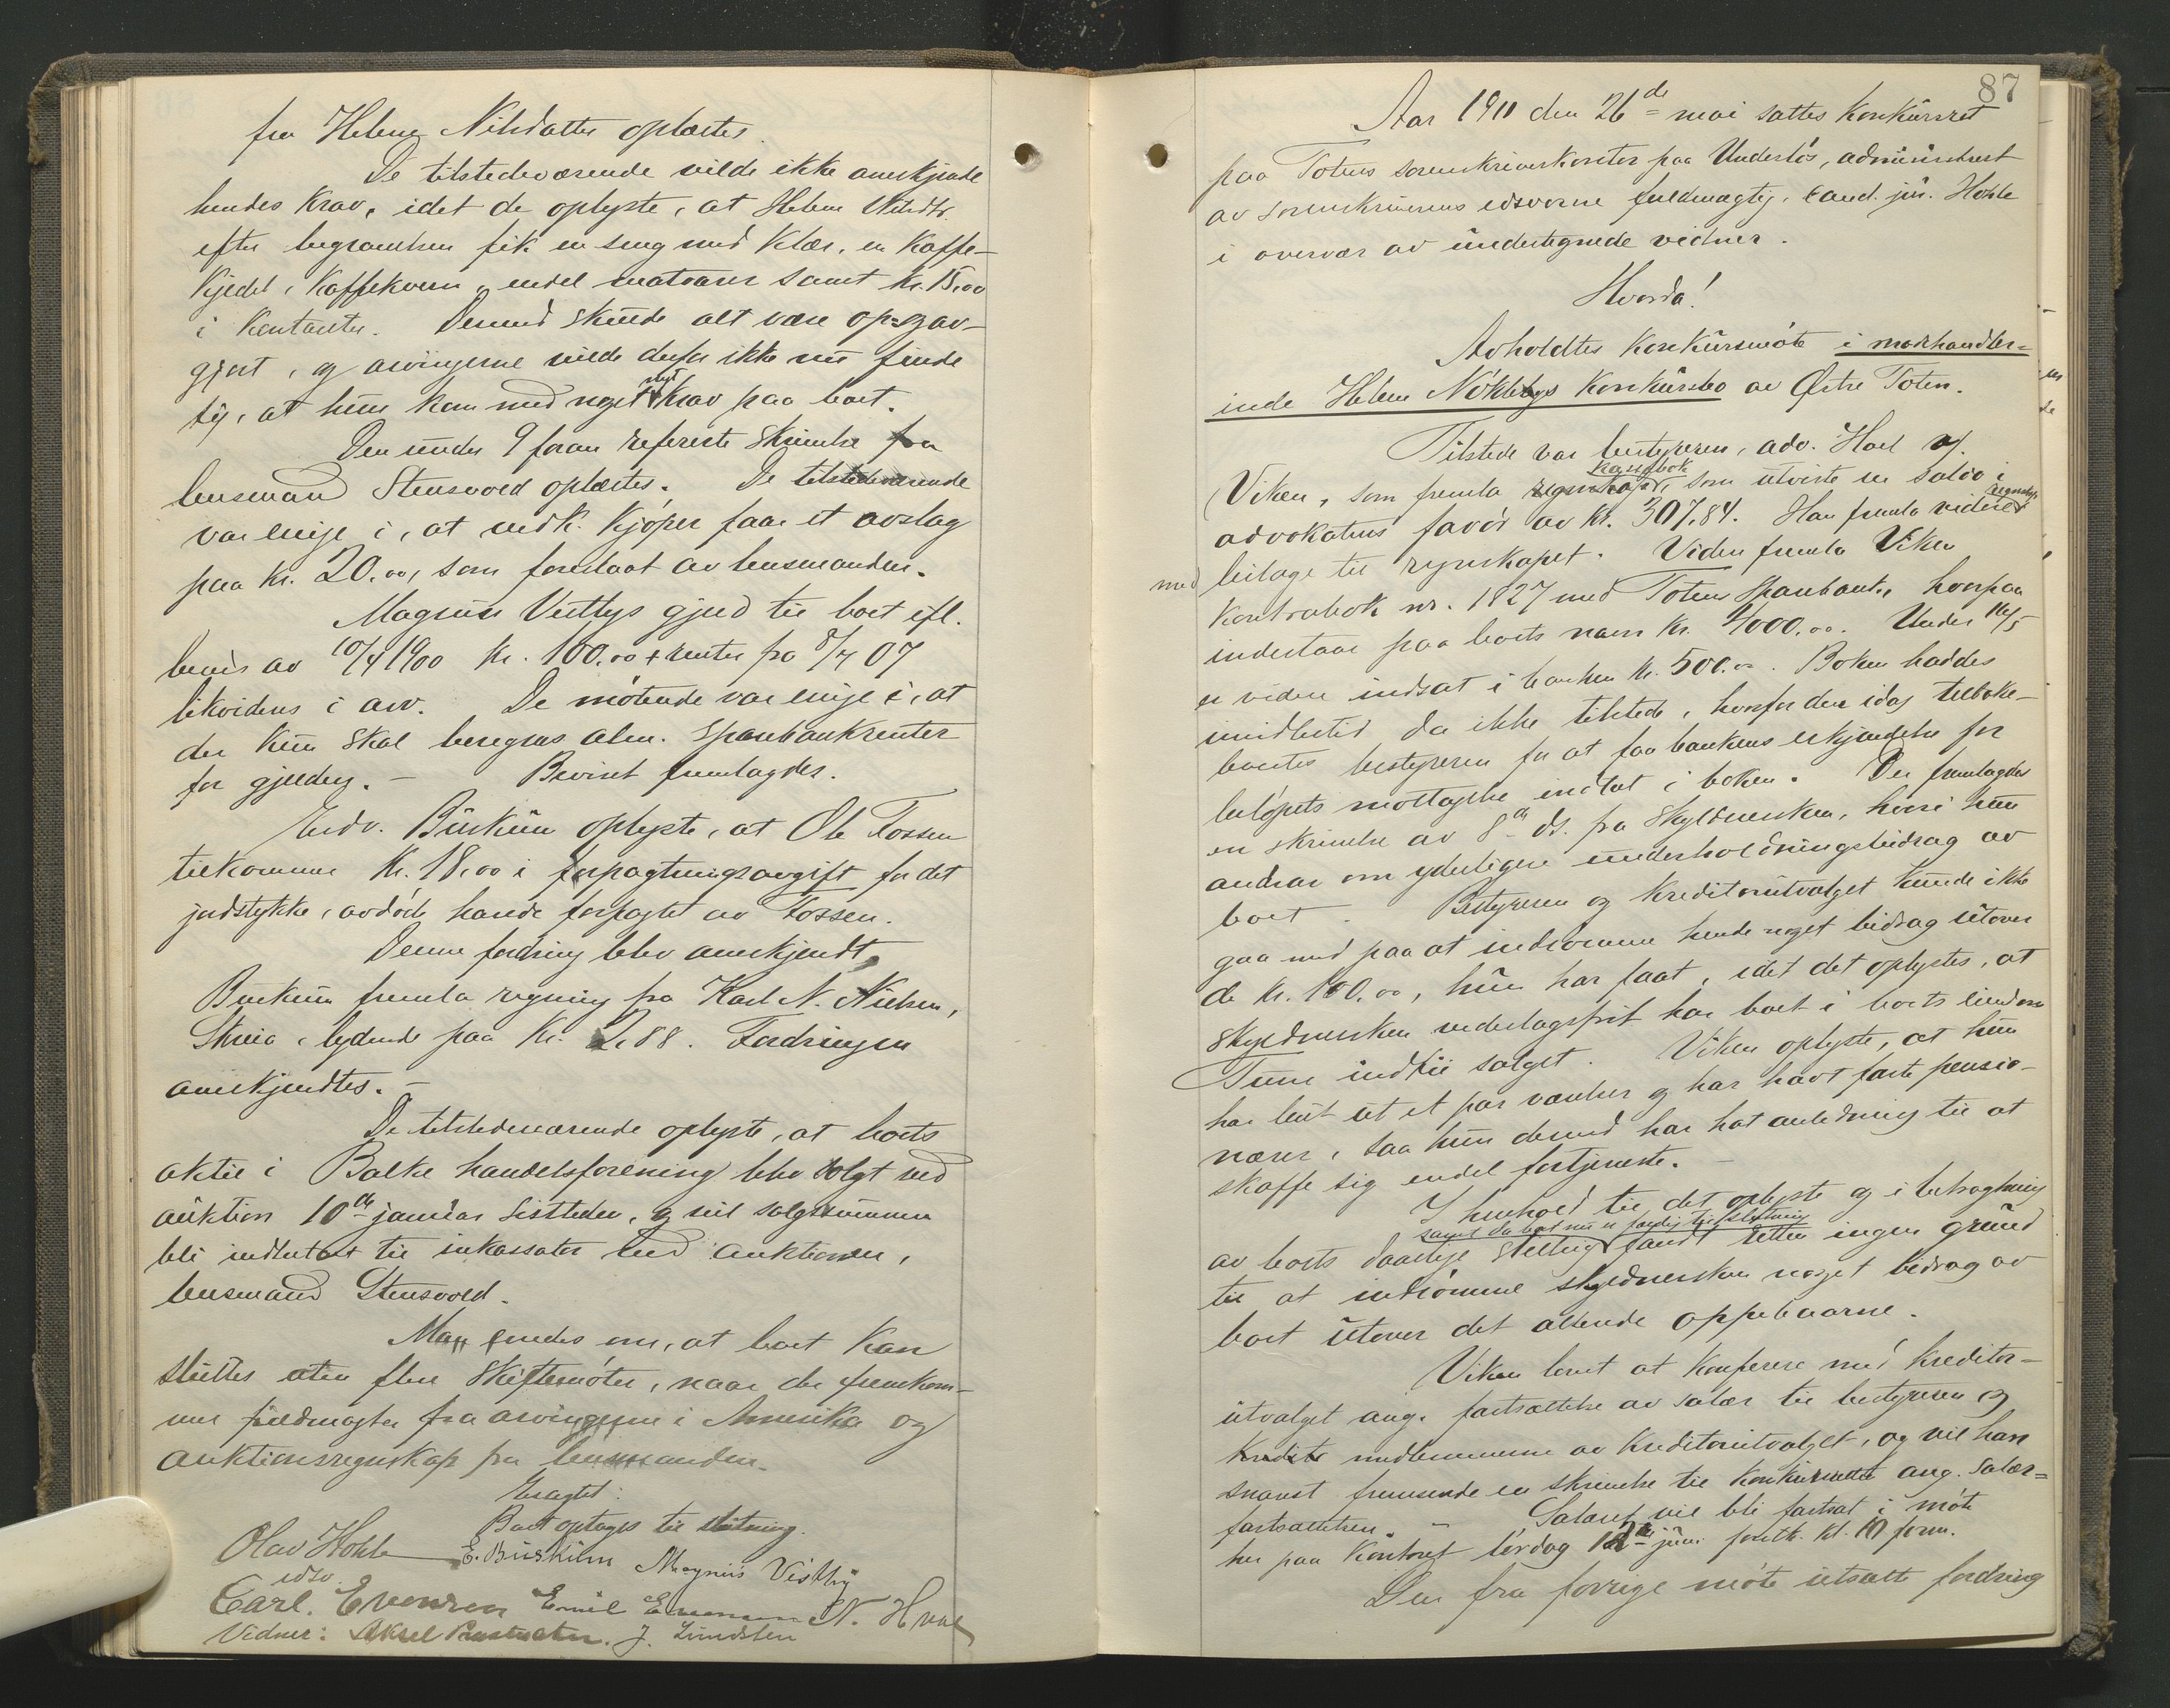 fra Helene Nilsdatter oplæstes.
De tilstedeværende vilde ikke anerkjende
hendes krav, idet de oplyste, at Helene Nilsdtr.
efter begravelsen fik en seng med klær, en kaffe-
kjedel, kaffekvern, endel matvarer samt kr. 15.00
i kontanter. Dermed skulde alt være op- og av-
gjort, og arvingerne vilde derfor ikke nu finde
sig i, at hun kom med noget nyt krav paa boet.
Den under 9 foran refererte skrivelse fra
lensmand Stensvold oplæstes. De tilstedeværende
var enige i, at vedk. kjøper faar et avslag
paa kr. 20.00, som foreslaat av lensmanden.
Magnus Vestbys gjæld til boet ifl.
bevis av 10/4 1900 kr. 100.00 + renter fra 8/4 07
likvideres i arv. De møtende var enige i, at
der kun skal beregnes alm. sparebankrenter
for gjælden. – Beviset fremlagdes.
Endv. Burkum oplyste, at Ole Fossen
tilkommer kr. 18.00 i forpagtningsavgift for det
jordstykke, avdøde havde forpagtet av Fossen.
Denne fordring blev anerkjendt.
Burkum fremla regning fra Karl N. Nielsen,
Skreia, lydende paa kr. 2.88. Fordringen
anerkjendtes. –
De tilstedeværende oplyste, at boets
aktie i Balke handelsforening blev solgt ved
auktion 10de januar sistleden, og vil salgssummen
bli indbetalt til inkassator ved auktionen,
lensmand Stensvold.
Man enedes om, at boet kan
sluttes uten flere skiftemøter, naar der fremkom-
mer fuldmagter fra arvingerne i Amerika og
auktionsregnskap fra lensmanden.
Eragtet:
Boet optages til slutning.
Olav Hohle E. Burkum Magnus Vestby
edsv.
Carl. Evensen Emil Evensen N. Hval
Vidner: Aksel J. Lundsten
87
Aar 1910 den 26de mai sattes konkursret
paa Totens sorenskriverkontor paa Underlös, administrert
av sorenskriverens edsvorne fuldmægtig, cand. jur. Hohle
i overvær av undertegnede vidner.
Hvorda!
Avholdtes konkursmøte i mothandler-
inde Helene Nøklebys konkursbo av Østre Toten.
Tilstede var bestyreren, adv. Hoel v/
kassabok
Viken, som fremla regnskapet, som utviste en saldo i
advokatens favør av kr. 307.84. Han fremla videre regnskap
med bilage til regnskapet. Viden fremla Viken
kontrabok nr. 1827 med Totens Sparebank, hvorpaa
indestaar paa boets navn kr. 4000.00. Under 10/5
er videre indsat i banken kr. 500.00. Boken haddes
imidlertid da ikke tilstede, hvorfor den idag tilbake-
levertes bestyreren for at faa bankens erkjendelse for
beløpets mottagelse indtat i boken. Der fremlagdes
en skrivelse av 8de ds. fra skyldnersken, hvori hun
andrar om yderligere underholdningsbidrag av
boet. Bestyreren og kreditorutvalget kunde ikke
gaa med paa at indrømme hende noget bidrag utover
de kr. 100.00, hun har faat, idet det oplystes, at
skyldnersken vederlagsfrit har boet i boets eiendom
Tune indtil salget. Viken oplyste, at hun
har leiet ut et par værelser og har havt faste pensio-
nærer, saa hun derved har hat anledning til at
skaffe sig endel fortjeneste. –
I henhold til det oplyste og i betragtning
samt da boet nu er færdig til slutning
av boets daarlige stilling fandt retten ingen grund
til at indrømme skyldnersken noget bidrag av
boet utover det allerede oppebaarne.
Viken lovet at konferere med kreditor-
utvalget ang. fastsættelse av salær til bestyreren og
medlemmerne av kreditorutvalget, og vil han
snarest fremsende en skrivelse til konkursretten ang. salær-
fastsættelsen. – Salæret vil bli fastsat i møte
her paa kontoret lørdag 12te juni førstk. kl. 10 form.
Den fra forrige møte utsatte fordring